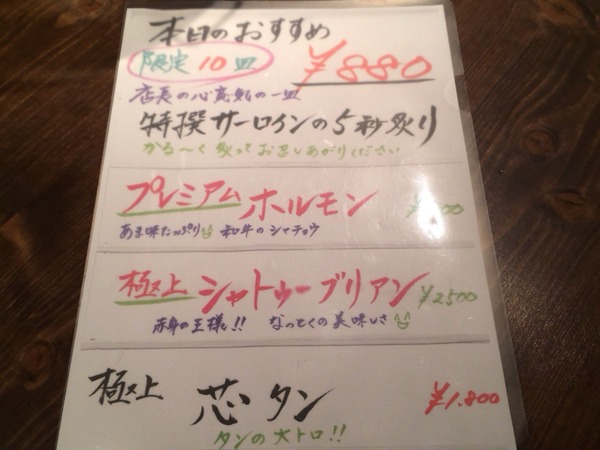 本日のおすすめ
限定10皿 ¥880
店長の心意気の一皿
特撰サーロインの5秒炙り
かる〜く炙ってお召しあがりください
プレミアムホルモン
あま味たっぷり 和牛のシマチョウ
極上シャトゥーブリアン ¥2500
赤身の王様!! なっとくの美味しさ
極上 芯タン ¥1.800
タンの大トロ!!